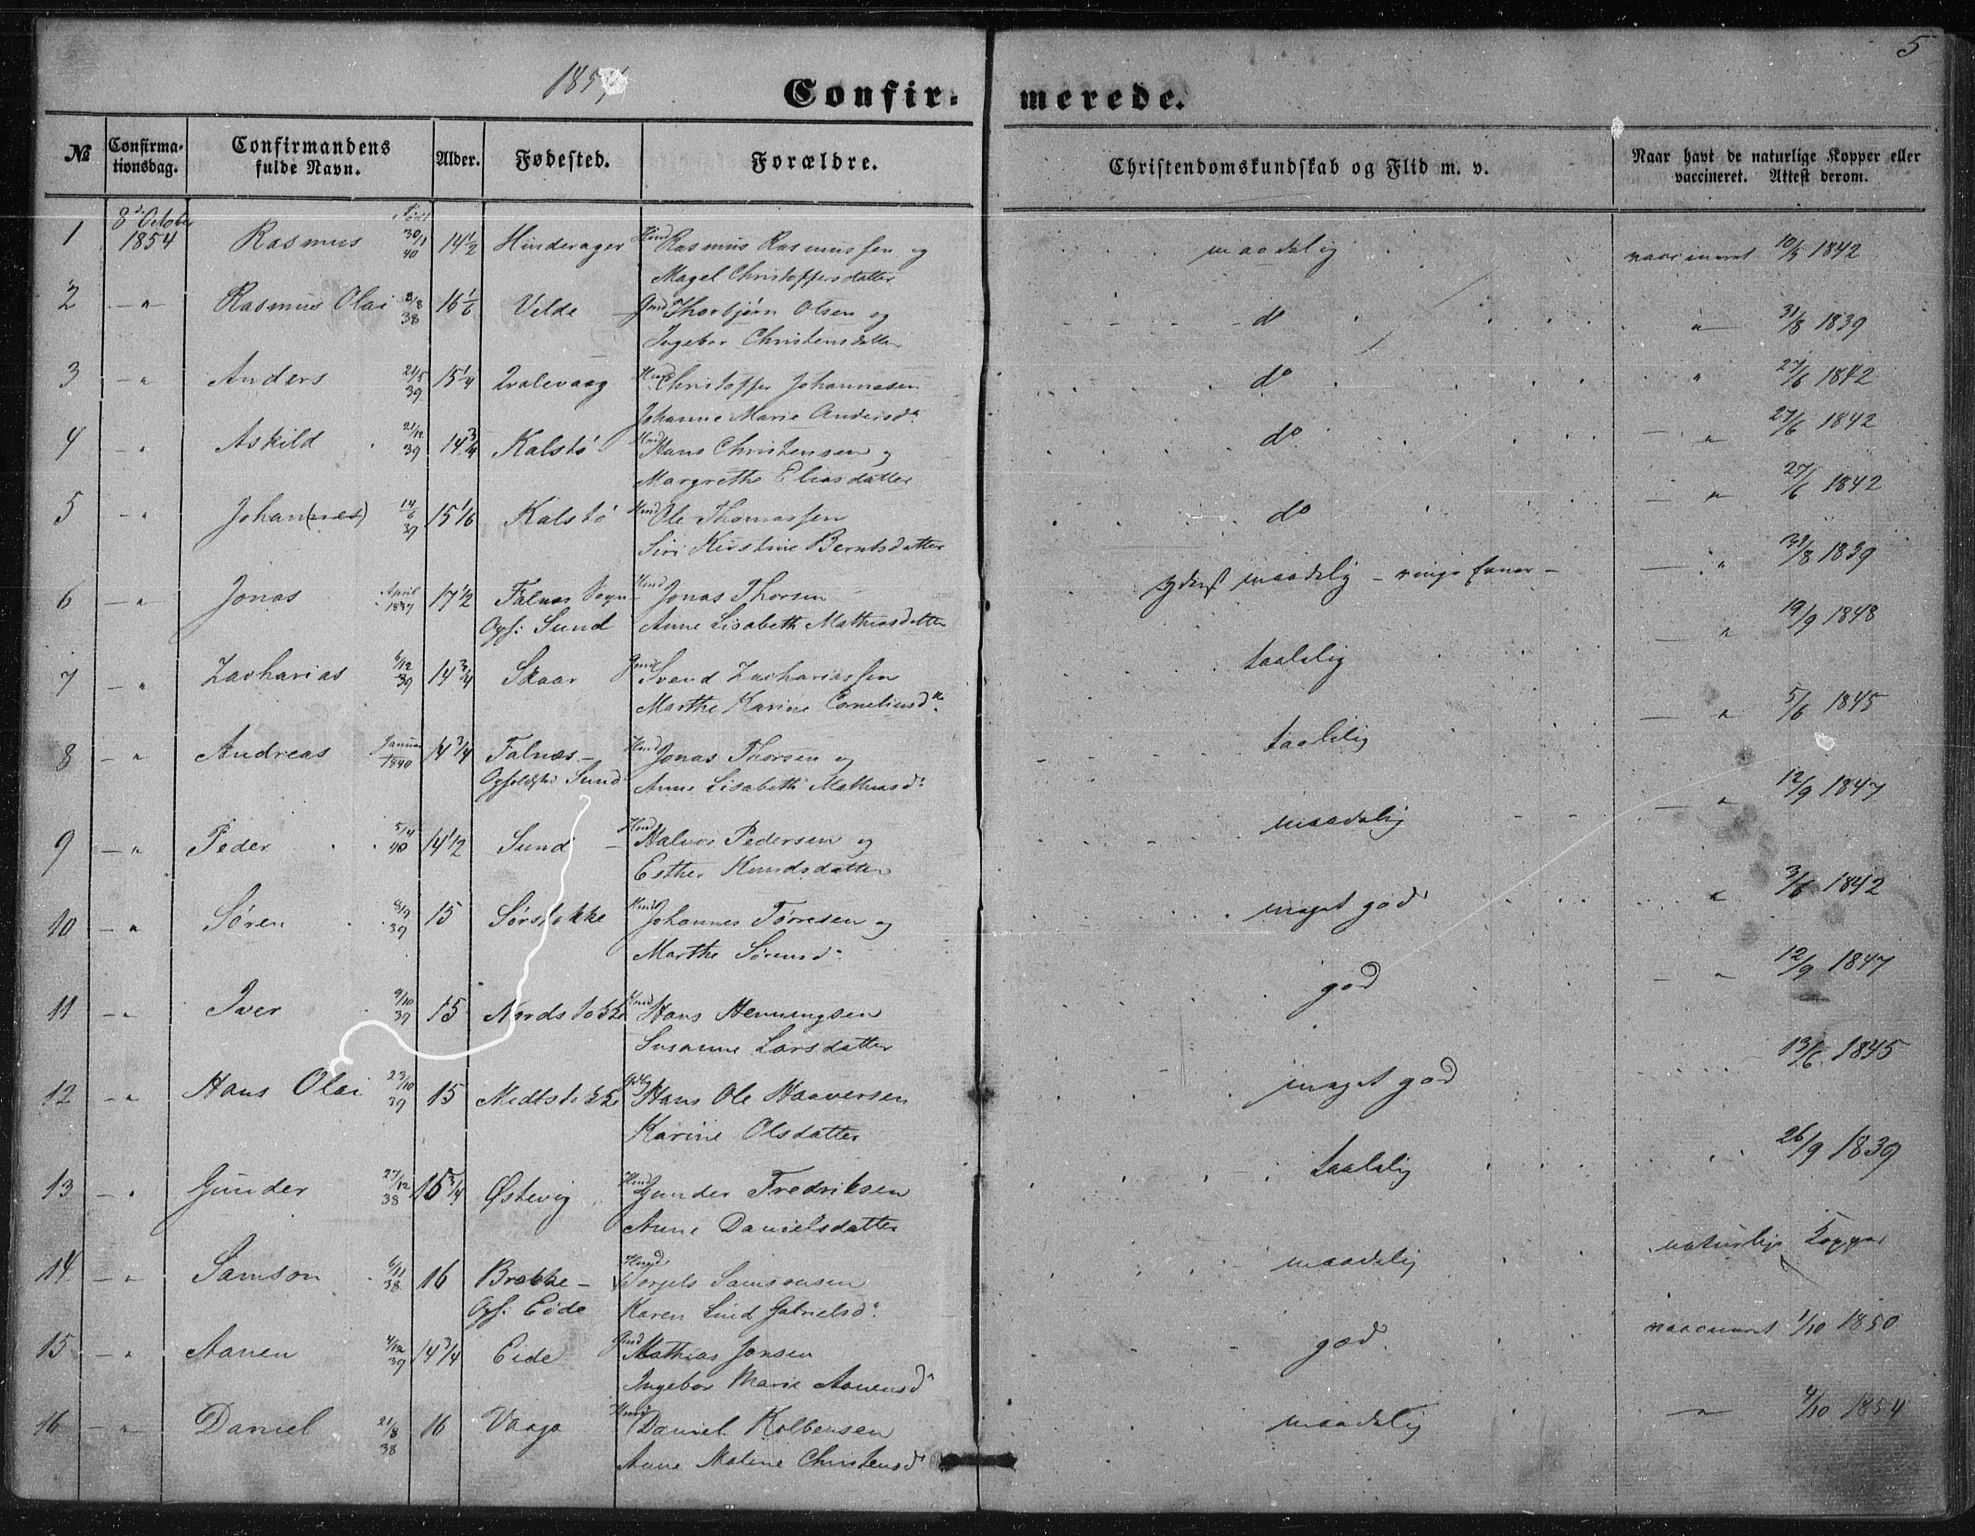 5
1854
Confir- merede.
№ Confirma-tionsdag. Confirmandens fulde Navn. Alder. Fødested. Forældre. Christendomskundskab og Flid m. v. Naar havt de naturlige Kopper eller vaccineret. Attest derom.
1 8de October 1854 Rasmus Født 30/1 40 14 1/2 Hinderager Hmd Rasmus Rasmussen og maadelig vaccineret 10/5 1842
Magel Christophersdatter
2 — " Rasmus Olai 8/8 38 16 1/6 Velde Gmd Thorbjørn Olsen og do " 31/8 1839
Ingebor Christensdatter
3 — " Anders 21/5 39 15 1/4 Qvalevaag Hmd Christoffer Johannesen do " 27/6 1842
Johanne Marie Andersd.
4 — " Askild 21/12 39 14 3/4 Kalstø Hmd Hans Christensen og do — " 27/6 1842
Margrethe Eliasdatter
5 — " Johan(nes) 14/6 39 15 1/6 Kalstø Hmd Ole Thomassen do — " 27/6 1842
Siri Kirstine Berntsdatter
6 — " Jonas April 1837 17 1/2 Falnæs Sogn Hmd Jonas Thorsen yderst maadelig — ringe Evner — — " 31/8 1839
Opf: Sund Anne Lisabeth Mathiasdatter
7 — " Zacharias 6/12 39 14 3/4 Skaar Gmd Svend Zachariassen taalelig — " 19/9 1848
Marthe Karine Corneliusd.
8 — " Andreas Januar 1840 14 3/4 Falnæs — Hmd Jonas Thorsen og taalelig — " 5/6 1845
Opfoldster Sund Anne Lisabeth Mathiasd.
9 — " Peder 5/4 40 14 1/2 Sund — Hmd Halvor Pedersen og maadelig — " 12/9 1847
Esther Knudsdatter
10 — " Søren 39 15 Sørstokke Hmd Johannes Tørresen og meget god " 3/6 1842
Marthe Sørensd.
11 — " Iver 9/10 39 15 Nordstokke Hmd Hans Henningsen god — " 12/9 1847
Susanne Larsdatter
12 — " Hans Olai 23/10 39 15 Medtstokke Hans Ole Haaversen meget god 13/6 1845
Karine Olsdatter
13 — " Gunder 27/12 38 15 3/4 Østevig Hmd Gunder Fredriksen taalelig 26/9 1839
Anne Danielsdatter
14 — " Samson 6/11 38 16 Brekke — Hmd Torgels Samsonsen maadelig naturlige Kopper
Opf: Eide Karen Lind Gabrielsd.
15 — " Aanen 4/12 39 14 3/4 Eide Gmd Mathias Jonsen god. vaccineret 1/10 1850
Ingebor Marie Aanensd.
16 — " Daniel 21/8 38 16 Vaage Hmd Daniel Kolbensen maadelig — " 4/10 1854
Anne Malene Christensd.